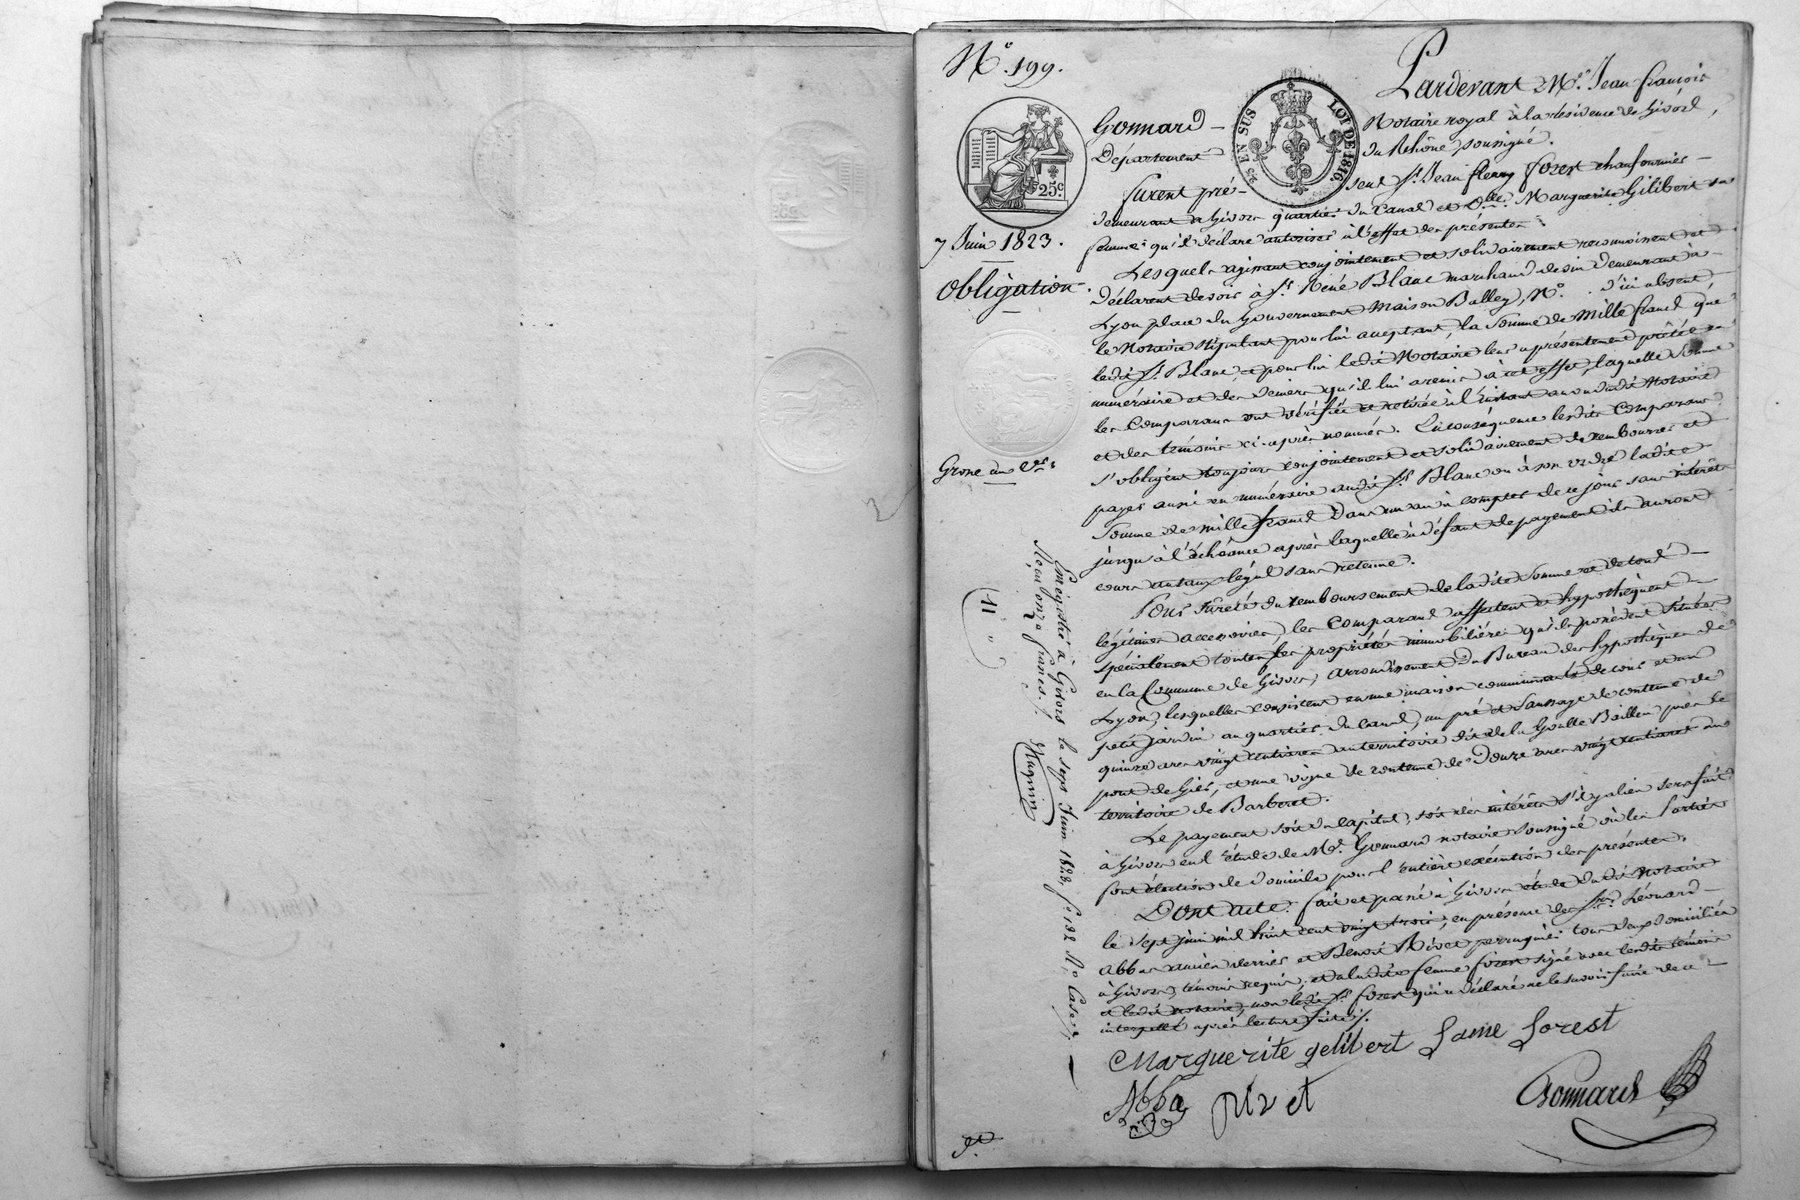 N.º 199.
Pardevant Me. Jean françois
Gonnard - Notaire royal à la résidence de Givors,
Département du Rhône soussigné.
25 EN SUS
LOI DE 1816.
25.c
furent pré- sent sr. Jean fleury forest chaufournier -
demeurant à Givors quartier du Canal et Dlle. Marguerite Gilibert sa
femme qu'il déclare autoriser à l'effet des présentes
7 Juin 1823.
Obligation.
Lesquels agissant conjointement et solidairement reconnoissent et
déclarent devoir à sr. Réné Blanc marchand de vin demeurant à -
Lyon place du Gouvernement Maison Balley, N.º . d'ici absent,
le Notaire stipulant pour lui acceptant, la somme de mille francs que
ledit sr. Blanc, et pour lui ledit Notaire leur a présentement prêtée en
numéraire et des deniers qu'il lui a remis à cet effet, laquelle somme
les Comparans ont vérifiée et retirée à l'instant au vu dudit Notaire
et des témoins ci-après nommés. En conséquence lesdits Comparans
s'obligent toujours conjointement et solidairement de rembourser et
payer aussi en numéraire audit sr. Blanc ou à son ordre ladite
Somme de mille francs dans un an à compter de ce jour sans intérêts
jusqu'à l'échéance après laquelle à défaut de payement ils auront
cours au taux légal sans retenue.
Grosse au Cer.
Pour sûreté du remboursement de ladite Somme et de tous -
légitimes accessoires, les Comparans affectent et hypothèquent -
spécialement toutes les propriétés immobilières qu'ils possèdent situées
en la Commune de Givors, arrondissement du Bureau des hypothèques de
Lyon, lesquelles consistent en une maison communauté de cour et un
petit jardin au quartier du Canal, un pré et Saussaye de contenue de
quinze ares vingt centiares au territoire dit de la Goulle Baillon près le
pont de Gier, et une vigne de contenue de Douze ares vingt centiares au
territoire de Barberet.
Le payement soit du capital, soit des intérêts s'il y a lieu sera fait
à Givors en l'étude de Me. Gonnard notaire soussigné où les Parties
font élection de Domicile pour l'entière exécution des présentes.
Dont acte. fait et passé à Givors étude dudit Notaire
le sept juin mil huit cent vingt trois, en présence des srs. Léonard -
Abba ancien verrier et Benoit Rivet perruquier tous deux domiciliés
à Givors, témoins requis, et a ladite femme forest signé avec lesdits témoins
et ledit notaire, non ledit sr. forest qui a déclaré ne le savoir faire de ce -
interpellé après lecture faite /.
Enregistré à Givors le sept Juin 1823, f.º 192 R.º Case
Reçu onze francs.
11
Magnin
Marguerite gelibert fame forest
Abba rivet
Gonnard